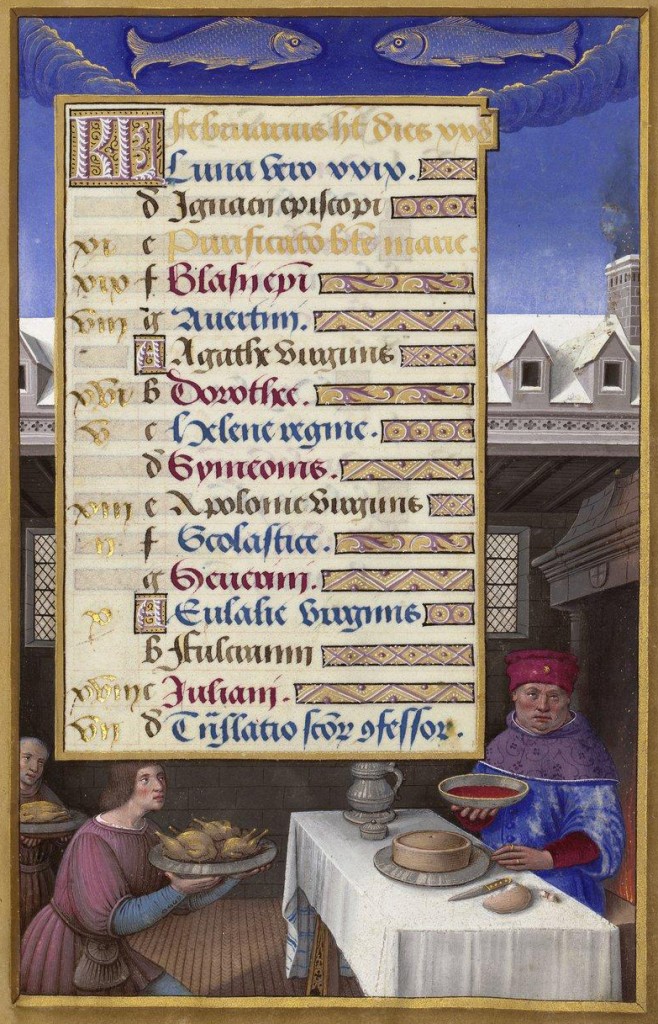 KL Februarius ht dies xxv
Luna vero xxix.
d Ignacii episcopi
xi e Purificatio bte marie.
xix f Blasii epi
viii g Auertini.
A Agathe virginis
xvi b Dorothee.
v c Helene regine.
d Symeonis.
xiii e Apolonie virginis
ii f Scolastice.
g
x A Eulalie virginis
b Ffulcranni
xviii c Juliani.
vii d Trãslatio scoꝝ ꝯfessoꝝ.